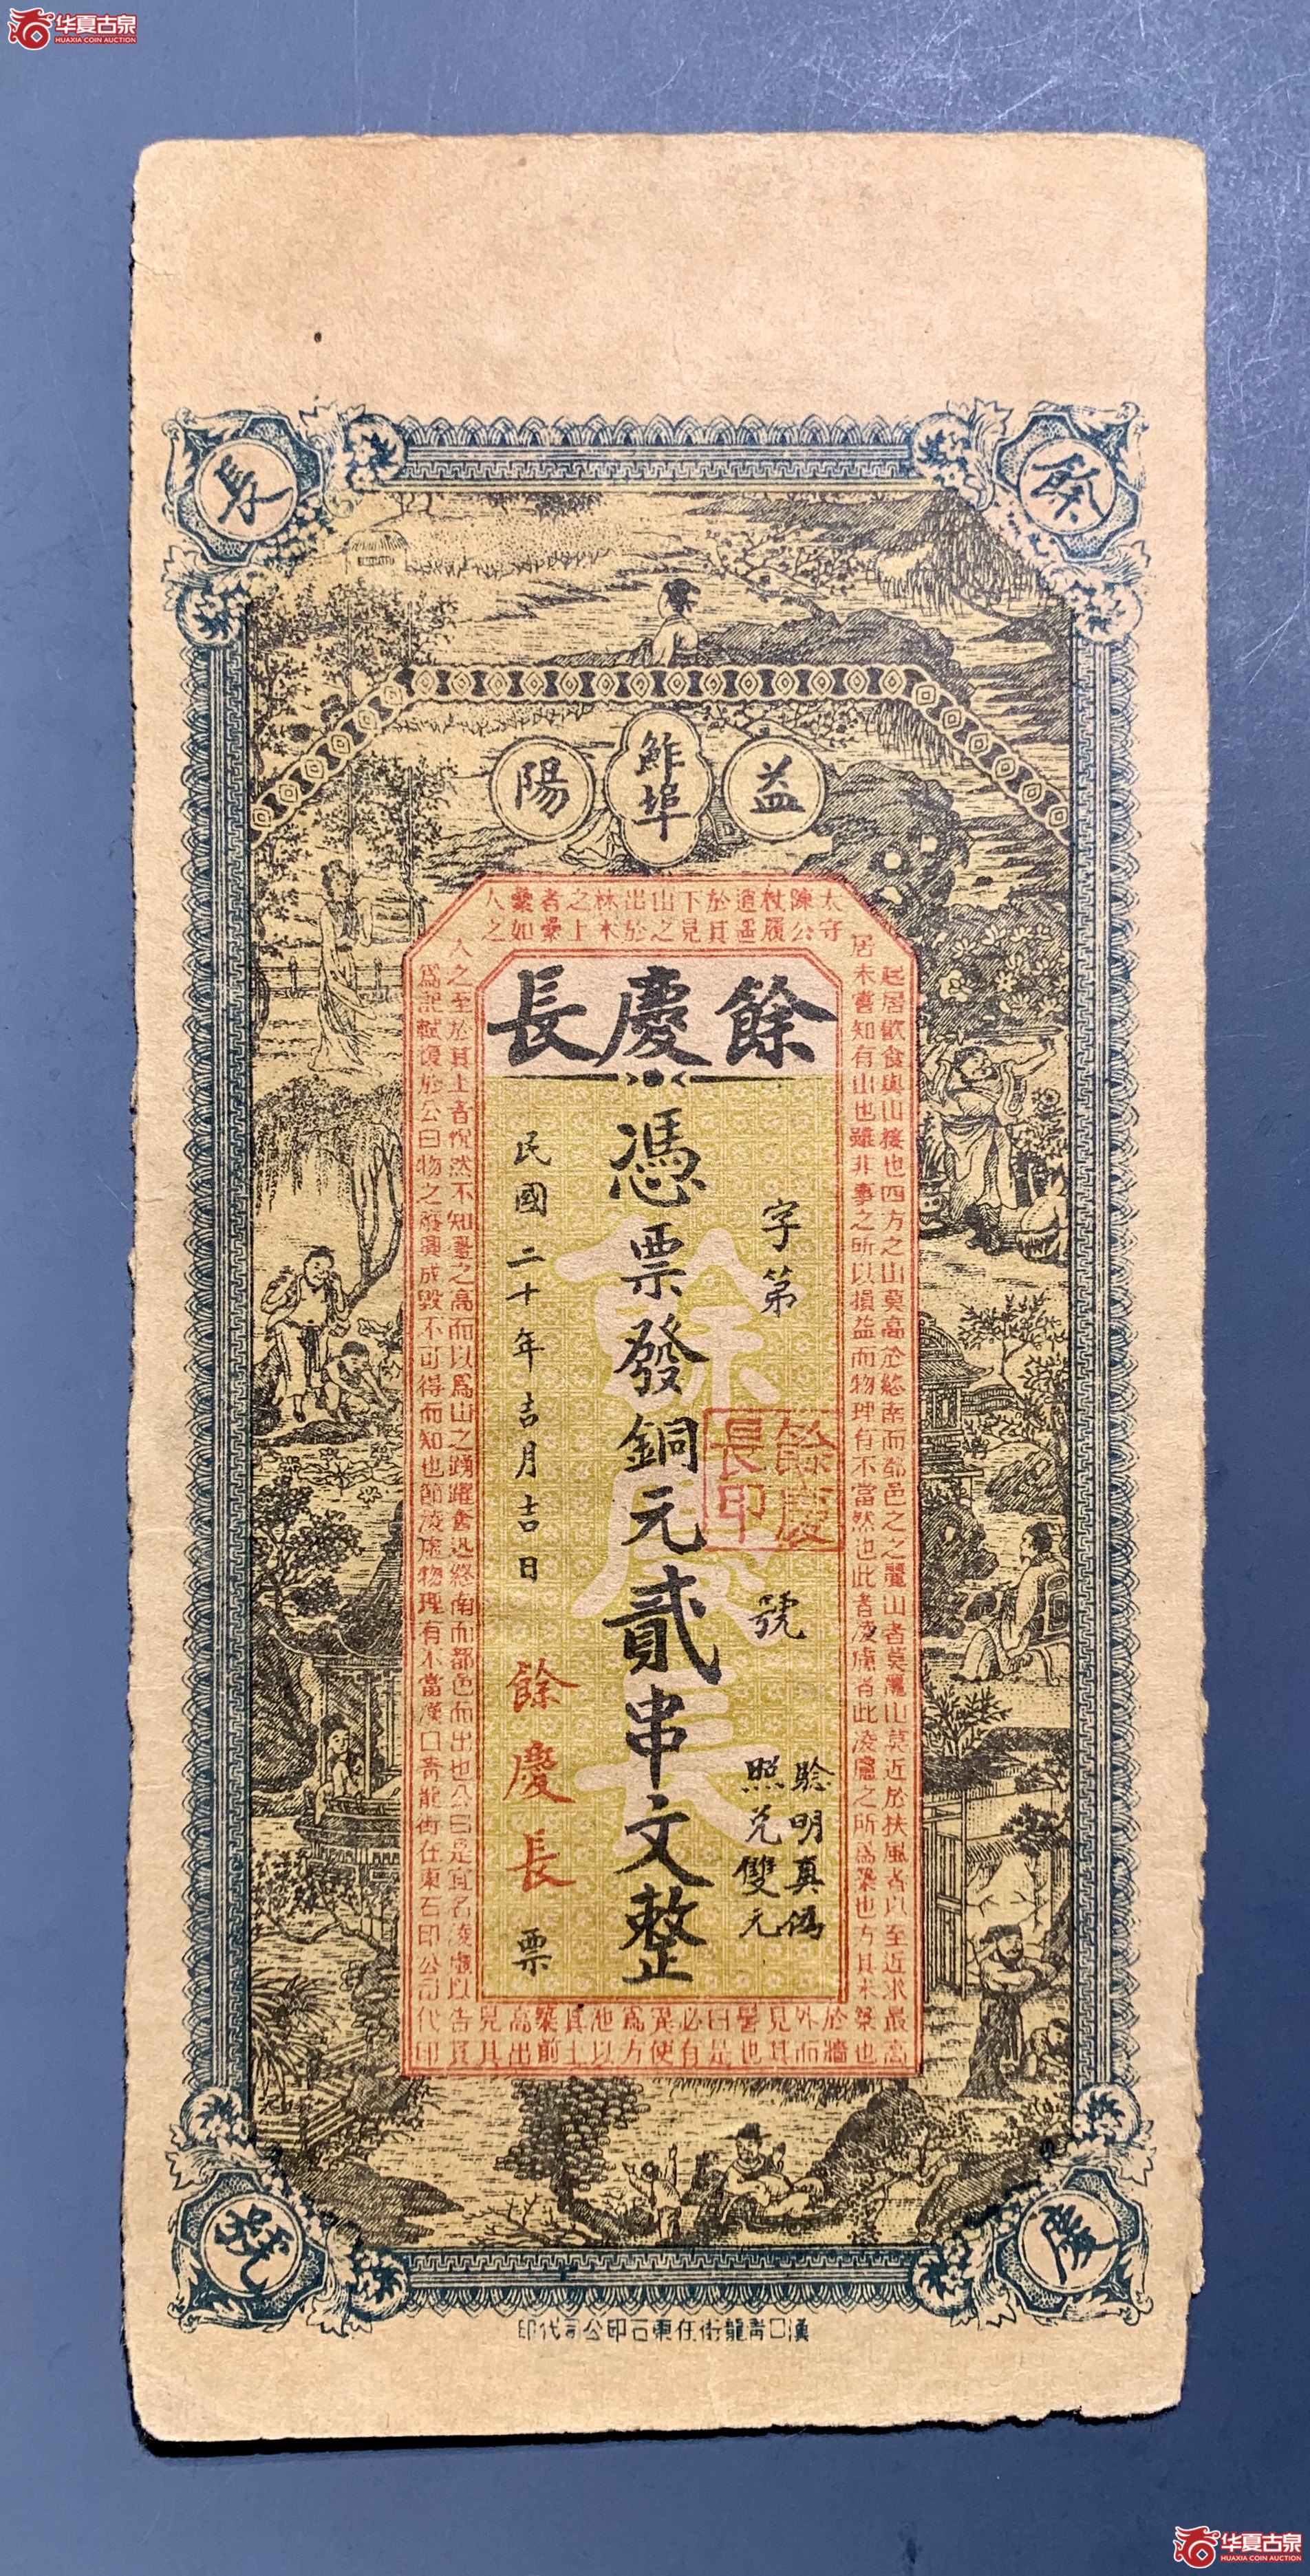 华夏古泉
HUAXIA COIN AUCTION
餘
長
慶
號
益
鮓埠
陽
太陳杖逍於下山出林之者纍人
守公履遥其見之於木上纍如之
餘慶長
字第
號
驗明真偽
照兑雙元
憑票發銅元貳串文整
民國二十年吉月吉日
餘慶長
票
餘慶長
餘慶長印
起居飲食與山接也四方之山莫高於終南而都邑之之麗山者莫麗山莫近於扶風者以至近求最高
居未嘗知有山也雖非事之所以損益而物理有不當然也此者凌虛者此凌虛之所為築也方其未築也
人之至於其上者恍然不知臺之高而以為山之踴躍奮迅終南而都邑而出也公曰是宜名凌虛以告
為記軾復於公曰物之廢興成毀不可得而知也節凌虛物理有不當漢口青龍街任東石印公司代印
漢口青龍街任東石印公司代印
华夏古泉
HUAXIA COIN AUCTION